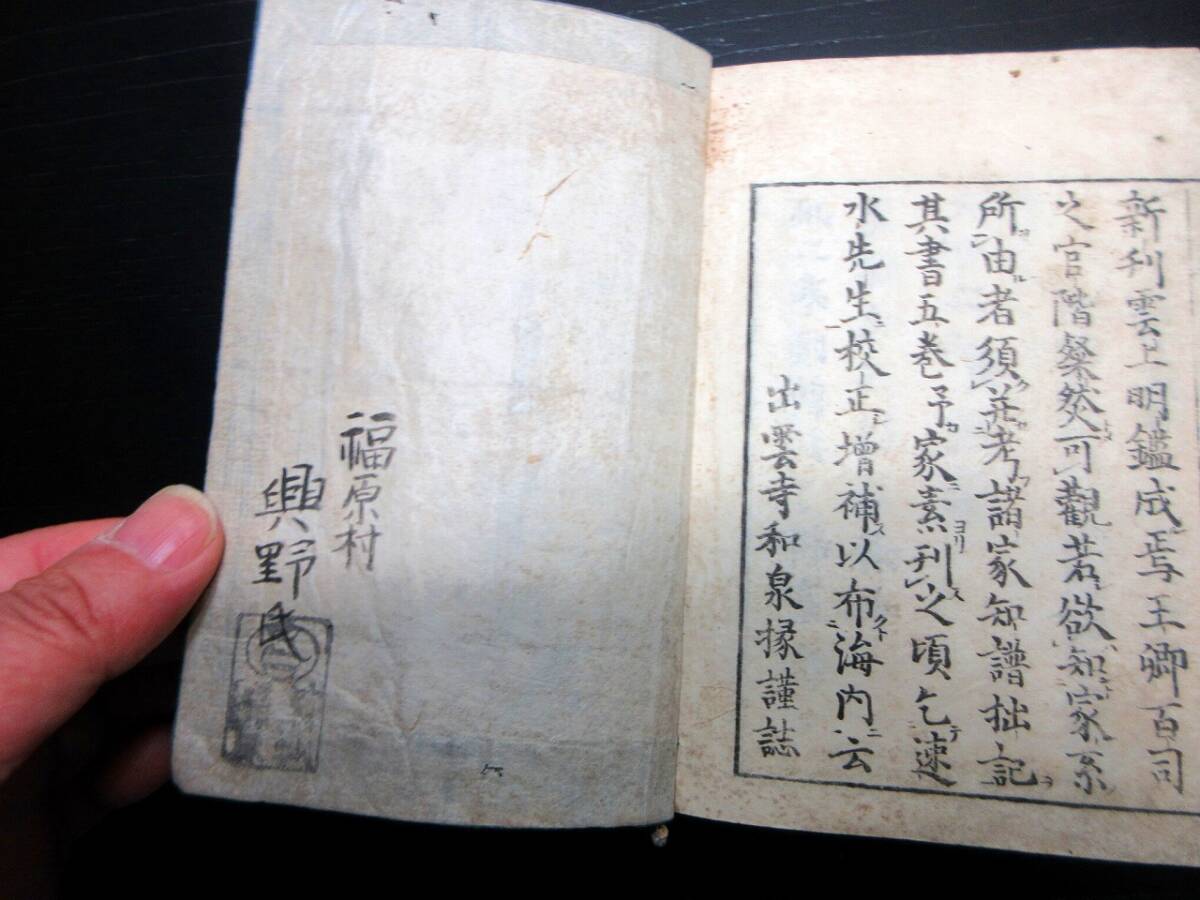 新刊雲上明鑑成焉王卿百司
之官階粲然可觀若欲知家系
所由者須并考諸家知譜拙記
其書五巻予家素刊之頃乞速
水先生校正增補以布海内云
出雲寺和泉掾謹誌
福原村
興野氏